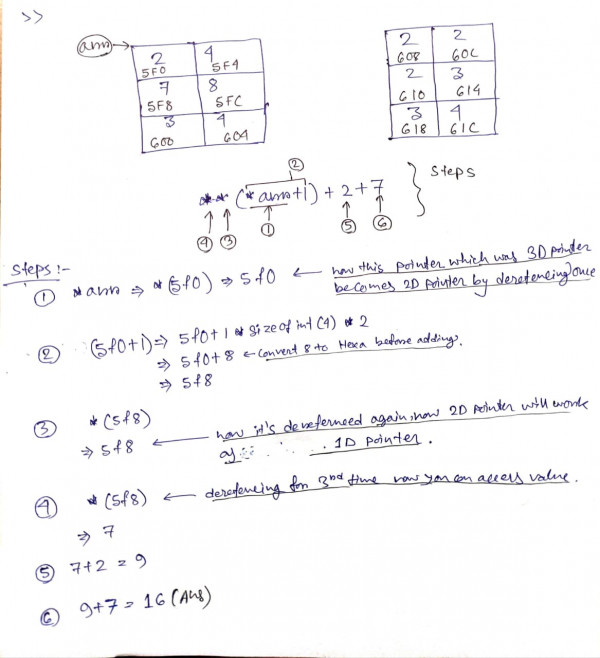 >>
arr
2 4 2 2
5F0 5F4 608 60C
7 8 2 3
5F8 5FC 610 614
3 4 3 4
600 604 618 61C
②
* * (*arr+1) + 2 + 7 } Steps
④ ③ ① ⑤ ⑥
Steps :-
① *arr ⇒ *(5f0) ⇒ 5f0 ← now this pointer which was 3D pointer
becomes 2D pointer by derefencing once
② (5f0+1) ⇒ 5f0+1 * Size of int (4) * 2
⇒ 5f0+8 ← Convert 8 to Hexa before adding.
⇒ 5f8
③ *(5f8)
⇒ 5f8 ← now it's dereferneed again now 2D pointer will work
as 1D pointer.
④ *(5f8) ← derefencing for 3rd time now you can access value.
⇒ 7
⑤ 7+2 = 9
⑥ 9+7 = 16 (Ans)